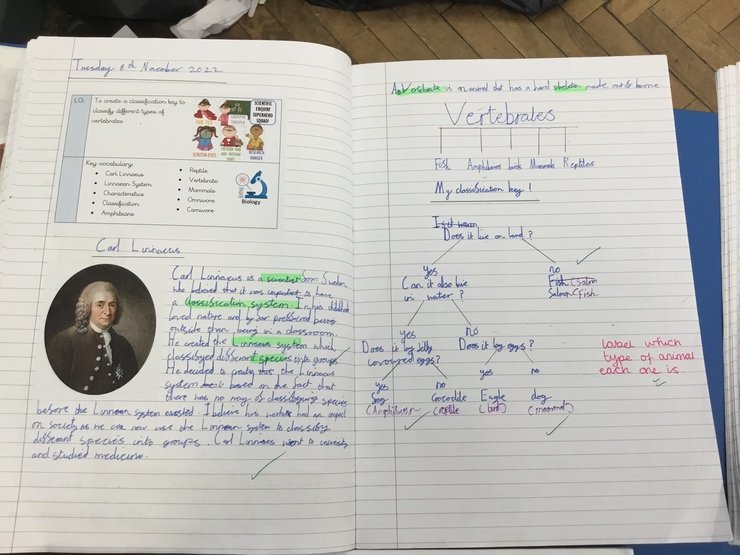 Tuesday 8th November 2022
LO:
To create a classification key to
classify different types of
vertebrates
SCIENTIFIC
ENQUIRY
SUPERHERO
SQUAD!
RESEARCH
RANGER
Key vocabulary:
Carl Linnaeus
Linnaean System
Characteristics
Classification
Amphibians
Reptile
Vertebrate
Mammals
Omnivore
Carnivore
Biology
Carl Linnaeus
Carl Linnaeus is a scientist from Sweden
who believed that it was important to have
a classification system. In
loved nature and by far preffered being
outside than being in a classroom.
He created the Linnaeus system which
classifyed different species into groups
He decided to create this the Linnaeus
system based on the fact that
there has no way of classifying species
before the Linnean system existed. I believe his work has had an impact
on society as we can now use the Linnean system to classify
different species into groups. Carl Linnaeus went to university
and studied medicine.
A Vertibrate is an animal that has a hard skeleton made out of bone
Vertebrates
Fish Amphibians birds Mammals Reptiles
My classification key!
Is it
Does it live on land?
yes
no
Can it also live
in water?
Fish (Salmon
Salmon (Fish
yes
no
Does it lay jelly
covered eggs?
Does it lay eggs?
yes
no
yes
no
Crocodile
Eagle
dog
(Amphibian)
(reptile
(bird)
(mammal)
Label which
type of animal
each one is.